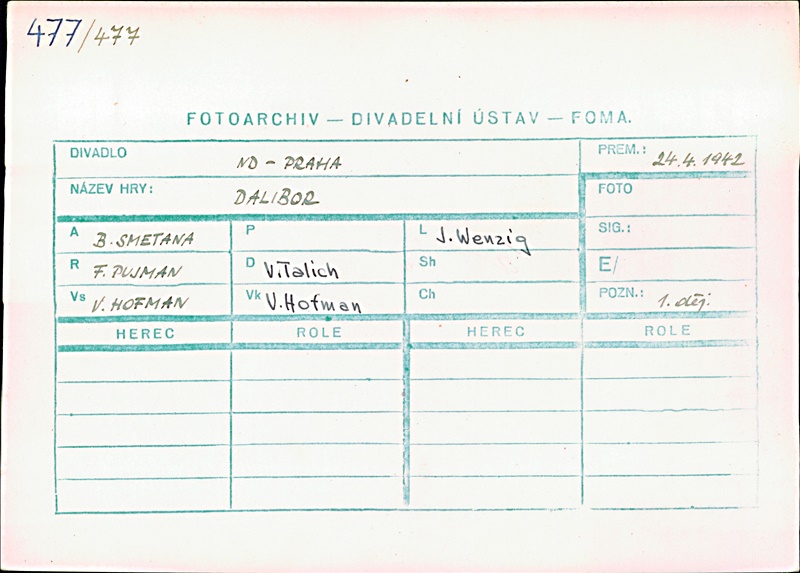 477/477
FOTOARCHIV — DIVADELNÍ ÚSTAV — FOMA.
DIVADLO ND - PRAHA PREM.: 24.4.1942
NÁZEV HRY: DALIBOR FOTO
A B. SMETANA P L J. Wenzig SIG.:
R F. PUJMAN D V. Talich Sh E/
Vs V. HOFMAN Vk V. Hofman Ch POZN.: 1. děj.
HEREC ROLE HEREC ROLE